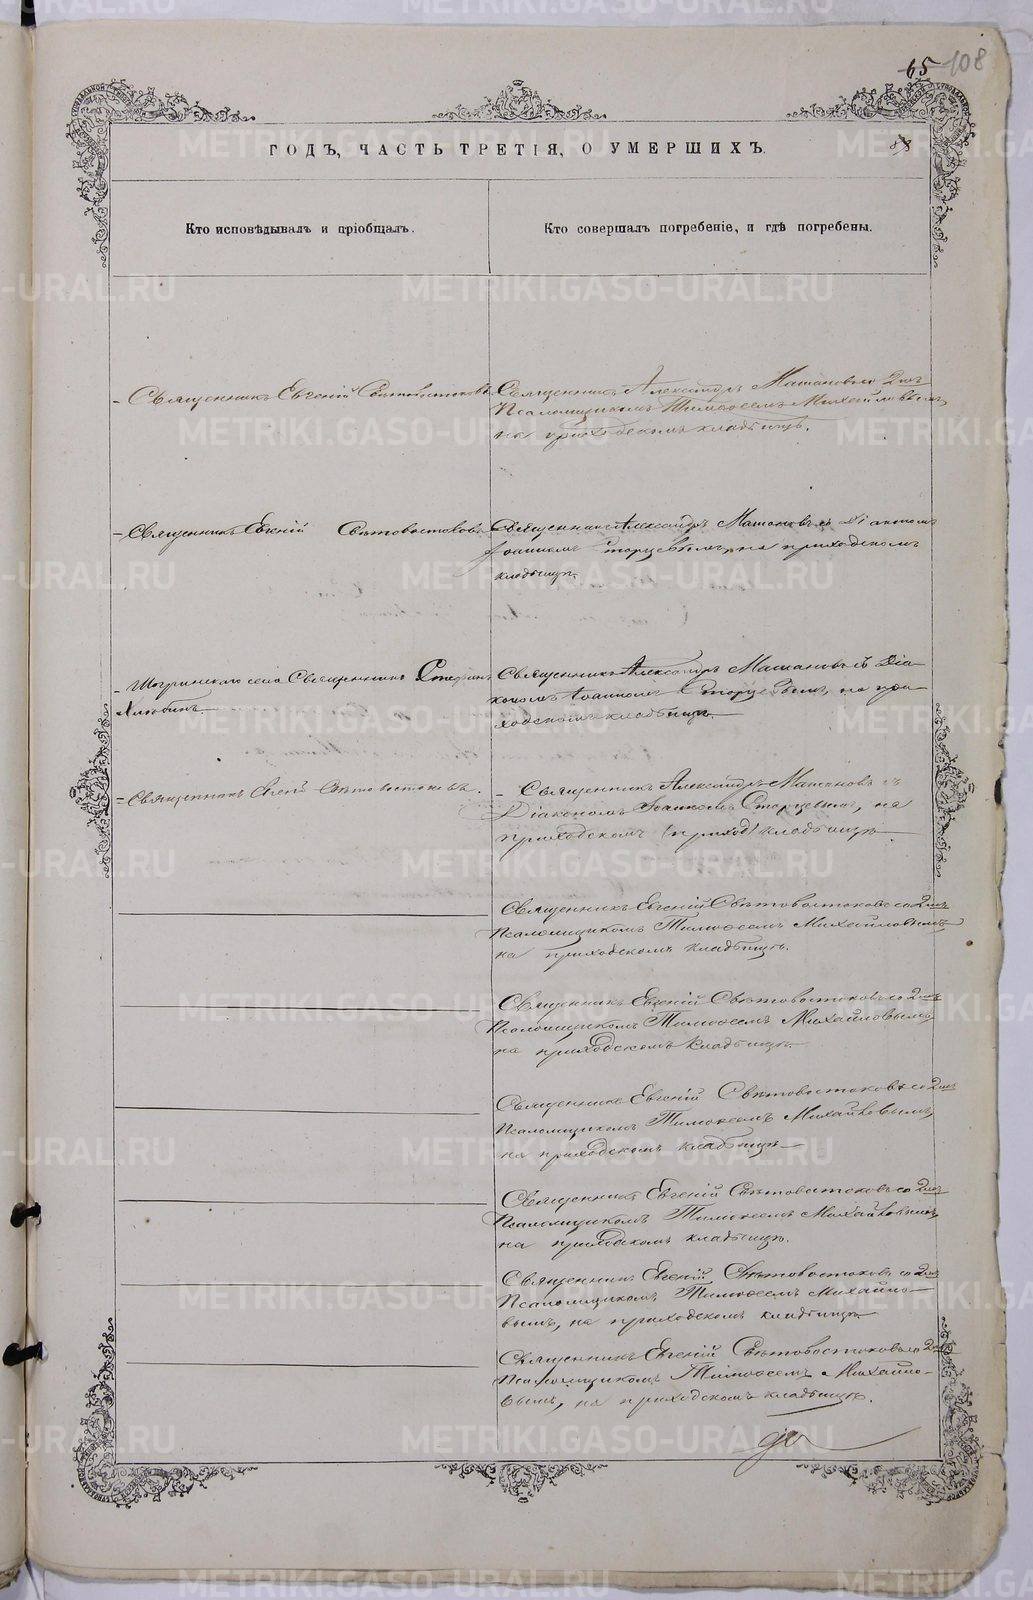 65 108
ГОДЪ, ЧАСТЬ ТРЕТІЯ, О УМЕРШИХЪ.
Кто исповѣдывалъ и пріобщалъ.
Кто совершалъ погребеніе, и гдѣ погребены.
Священникъ Евгеній Свѣтовостоковъ
Священникъ Александръ Машановъ со 2мъ
Псаломщикомъ Тимофеемъ Михайловымъ,
на приходскомъ кладбищѣ.
Священникъ Евгеній Свѣтовостоковъ
Священникъ Александръ Машановъ съ Діакономъ
Іоанномъ Старцевымъ, на приходскомъ
кладбищѣ.
Шогринскаго села Священникъ Стефанъ
Хлюбинъ.
Священникъ Александръ Машановъ съ Діа-
кономъ Іоанномъ Старцевымъ, на при-
ходскомъ кладбищѣ.
Священникъ Евгеній Свѣтовостоковъ.
Священникъ Александръ Машановъ съ
Діакономъ Іоанномъ Старцевымъ, на
приходскомъ (приход) кладбищѣ
Священникъ Евгеній Свѣтовостоковъ со 2мъ
Псаломщикомъ Тимофеемъ Михайловымъ
на приходскомъ кладбищѣ.
Священникъ Евгеній Свѣтовостоковъ со 2мъ
Псаломщикомъ Тимофеемъ Михайловымъ,
на приходскомъ кладбищѣ.
Священникъ Евгеній Свѣтовостоковъ со 2мъ
Псаломщикомъ Тимофеемъ Михайловымъ,
на приходскомъ кладбищѣ
Священникъ Евгеній Свѣтовостоковъ со 2мъ
Псаломщикомъ Тимофеемъ Михайловымъ,
на приходскомъ кладбищѣ.
Священникъ Евгеній Свѣтовостоковъ со 2мъ
Псаломщикомъ Тимофеемъ Михайло-
вымъ, на приходскомъ кладбищѣ
Священникъ Евгеній Свѣтовостоковъ со 2мъ
Псаломщикомъ Тимофеемъ Михайло-
вымъ, на приходскомъ кладбищѣ.
METRIKI.GASO-URAL.RU